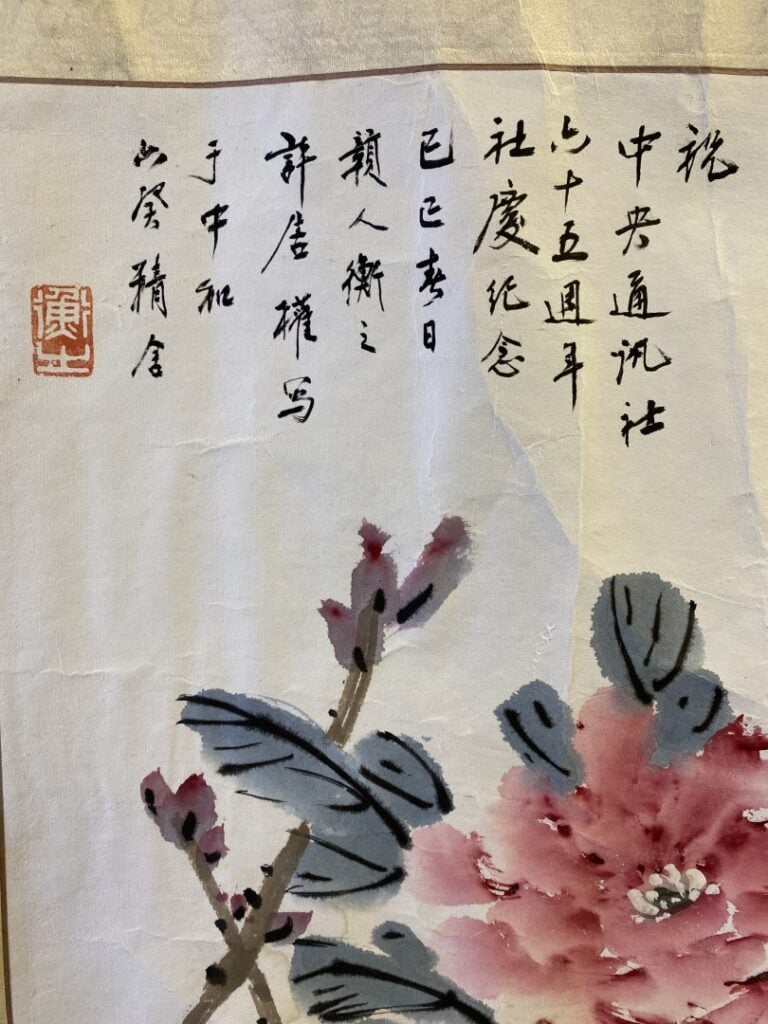 祝
中央通訊社
六十五週年
社慶纪念
己巳春日
贛人衡之
許居權写
于中和
精舍
衡之